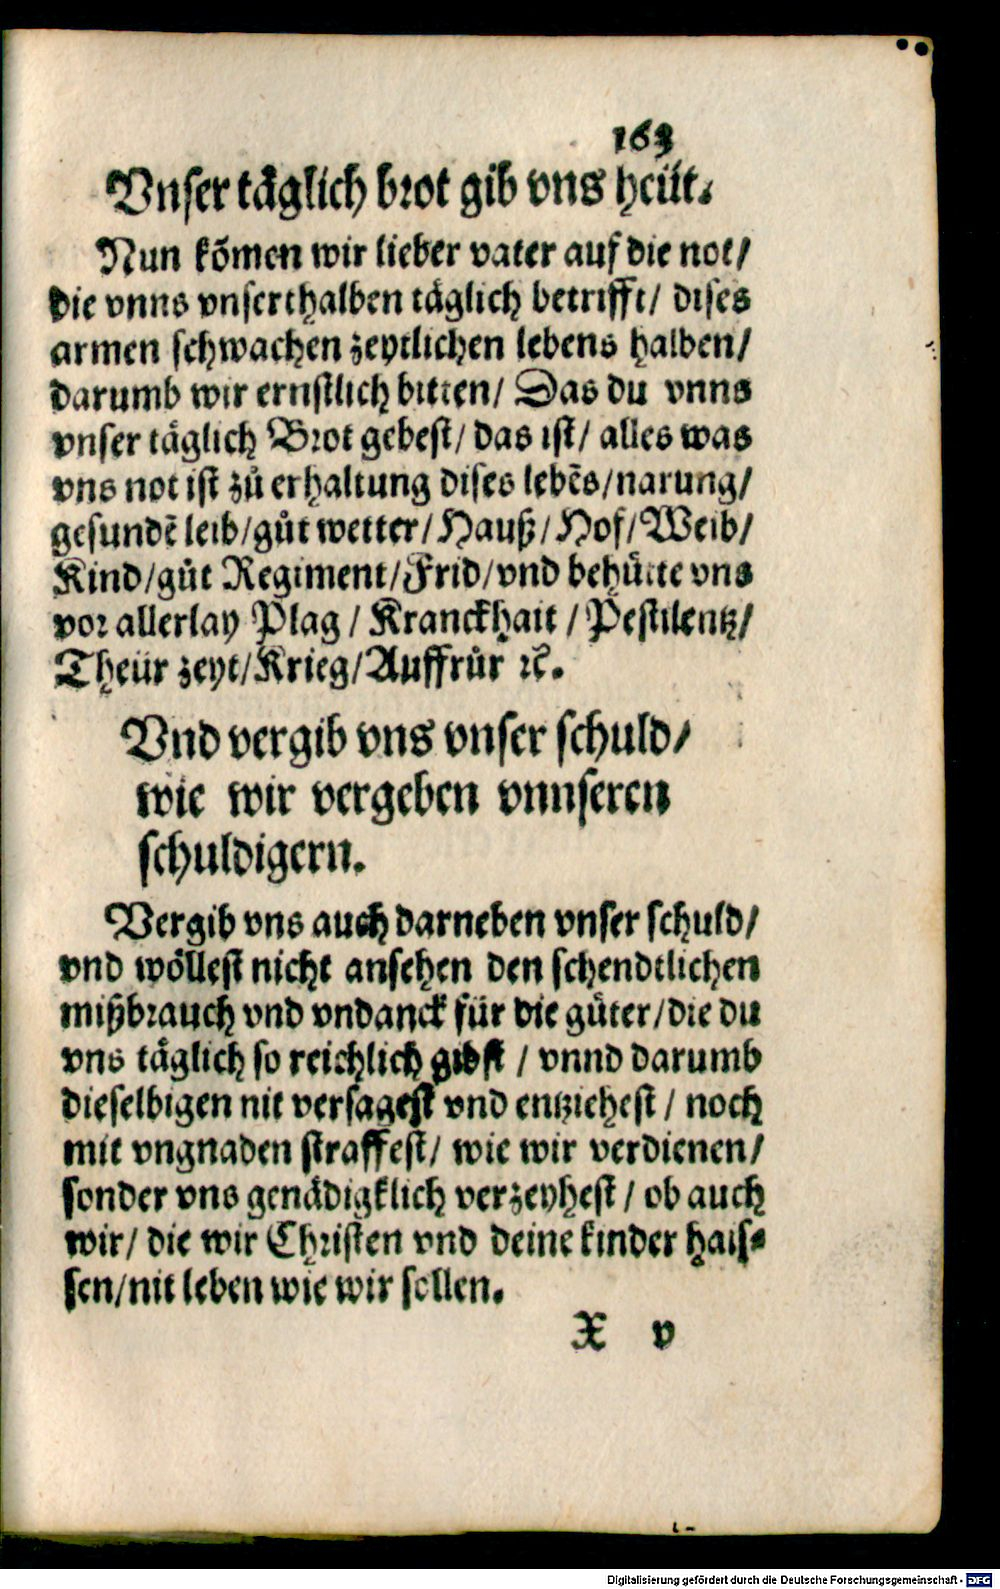 163
Vnser täglich brot gib vns heüt.
Nun kõmen wir lieber vater auf die not/
die vnns vnserthalben täglich betrifft/ dises
armen schwachen zeytlichen lebens halben/
darumb wir ernstlich bitten/ Das du vnns
vnser täglich Brot gebest/ das ist/ alles was
vns not ist zů erhaltung dises lebẽs/narung/
gesundẽ leib/gůt wetter/Hauß/Hof/Weib/
Kind/gůt Regiment/Frid/vnd behütte vns
vor allerlay Plag / Kranckhait / Pestilentz/
Theür zeyt/Krieg/Auffrůr ꝛc.
Vnd vergib vns vnser schuld/
wie wir vergeben vnnseren
schuldigern.
Vergib vns auch darneben vnser schuld/
vnd wöllest nicht ansehen den schendtlichen
mißbrauch vnd vndanck für die güter/die du
vns täglich so reichlich gibst / vnnd darumb
dieselbigen nit versagest vnd entziehest / noch
mit vngnaden straffest/ wie wir verdienen/
sonder vns genädigklich verzeyhest / ob auch
wir/ die wir Christen vnd deine kinder hais⸗
sen/nit leben wie wir sollen.
X v
Digitalisierung gefördert durch die Deutsche Forschungsgemeinschaft - DFG